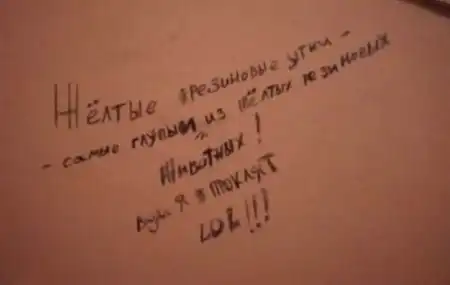 Жёлтые резиновые утки -
- самые глупый из жёлтых резиновых
животных!
я
LOL!!!